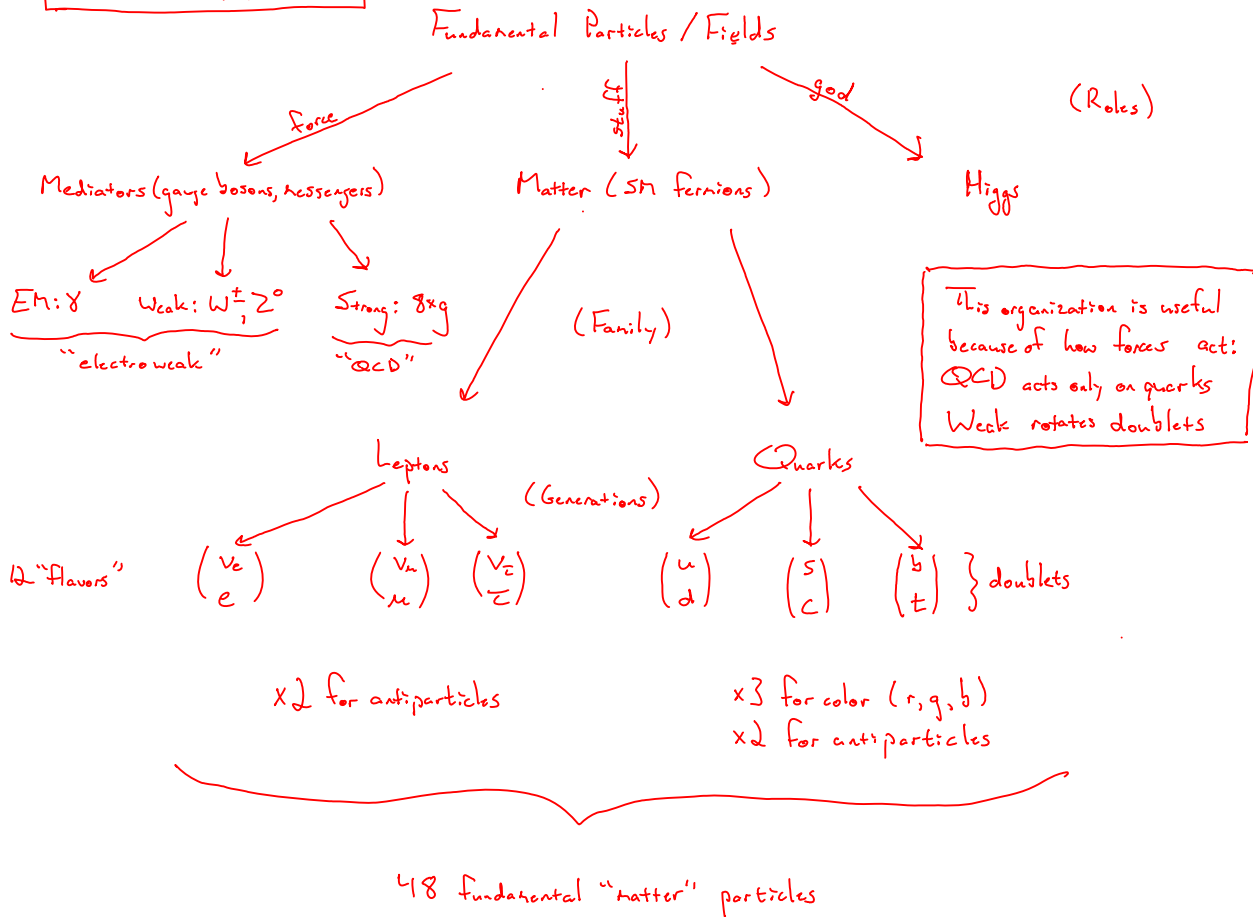 Fundamental Particles / Fields
force
stuff
god
(Roles)
Mediators (gauge bosons, messengers)
Matter (SM fermions)
Higgs
EM: γ
Weak: W±, Z⁰
Strong: 8×g
"electroweak"
"QCD"
(Family)
This organization is useful
because of how forces act:
QCD acts only on quarks
Weak rotates doublets
Leptons
Quarks
(Generations)
12 "flavors"
(νe e)
(νμ μ)
(ντ τ)
(u d)
(s c)
(b t)
} doublets
×2 for antiparticles
×3 for color (r, g, b)
×2 for antiparticles
48 fundamental "matter" particles